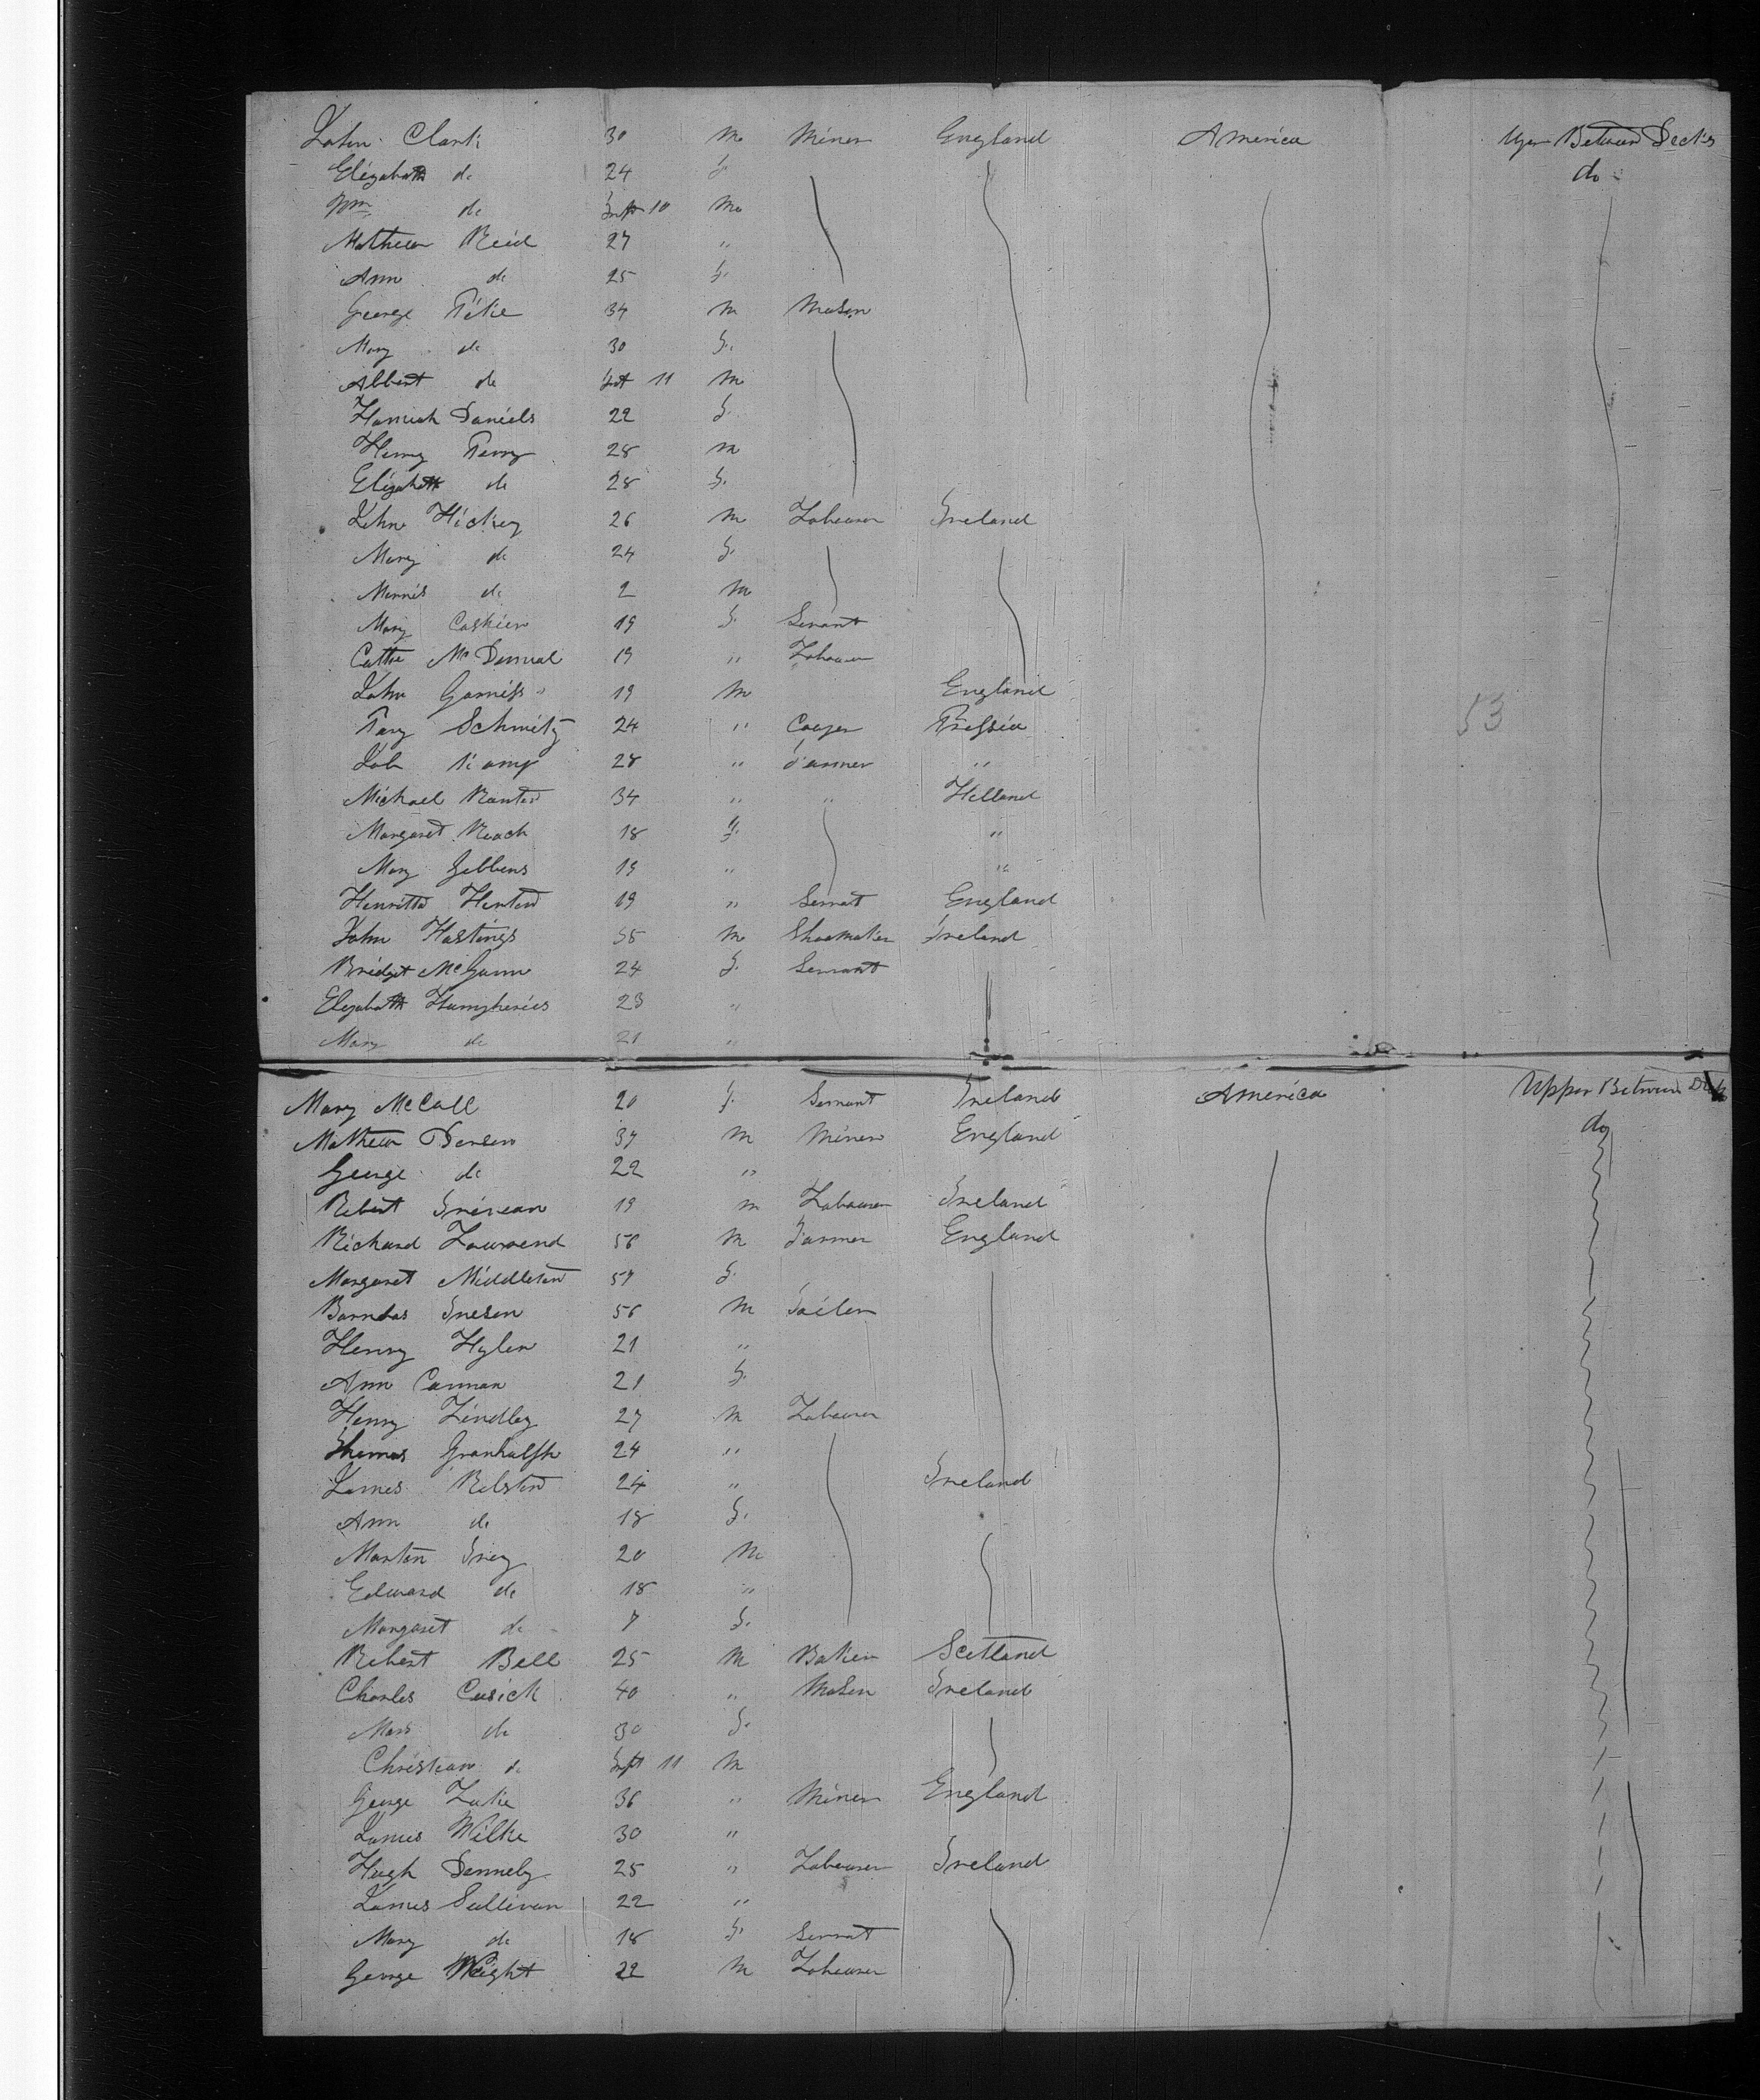 John Clark 30 M Miner England America Uper Between Decks
Elizabeth do 24 F. do
Wm do Inft 10 M
Mathew Reid 27 "
Ann do 25 F.
George Petie 34 M Mason
Mary do 30 F.
Albert do Inft 11 M
Hannah Daniels 22 F.
Henry Perry 28 M
Elizabeth do 28 F.
John Hickey 26 M Labourer Ireland
Mary do 24 F.
Morris do 2 M
Mary Coskien 19 F. Servant
Cathe Mc 19 " Labourer
John Garniss 19 M England
53
Schmitz 24 " Cooper Pressia
Kamp 28 " Farmer "
Michael 34 " " Holland
Margaret Roach 18 F. "
Mary Gibbens 19 " "
Henritta Hertend 19 " Servat England
John Hastings 55 M Shoemaker Ireland
Bridget McGunn 24 F. Servant
Elizabeth Humpheries 23 "
Mary do 21 "
Mary McCall 20 F. Servant Ireland America Upper Between Decks
Mathew 37 M Miner England do
George do 22 "
Robert 19 M Labourer Ireland
Richard Townsend 56 M Farmer England
Margaret Middleton 57 F.
Barnabas 56 M Tailor
Henry Hyler 21 "
Ann Cannan 21 F.
Henry Lindley 27 M Labourer
Thomas 24 "
James Rolston 24 " Ireland
Ann do 18 F.
Martin 20 M
Edward do 18 "
Margaret do 7 F.
Robert Bell 25 M Baker Scotland
Charles Cusick 40 " Mason Ireland
Mary do 30 F.
Christian do Inft 11 M
George 36 " Miner England
James Wilke 30 "
Hugh Denneby 25 " Labourer Ireland
James Sullivan 22 "
Mary do 18 F. Servat
George Wright 22 M Labourer